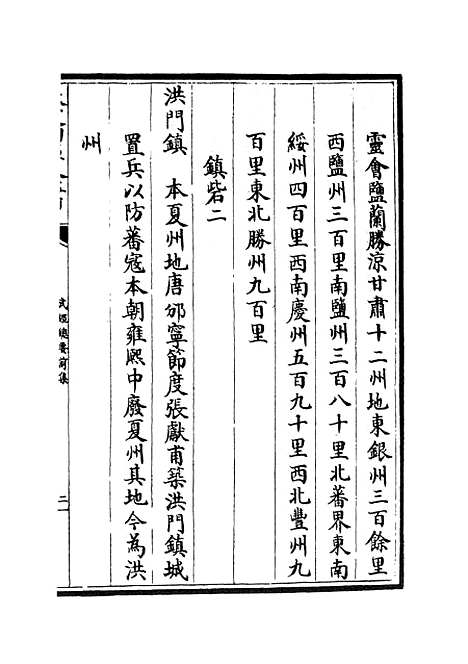 靈會鹽蘭勝涼甘肅十二州地東銀州三百餘里
西鹽州三百里南鹽州三百八十里北蕃界東南
綏州四百里西南慶州五百九十里西北豐州九
百里東北勝州九百里
鎮砦二
洪門鎮 本夏州地唐邠寧節度張獻甫築洪門鎮城
置兵以防蕃寇本朝雍熙中廢夏州其地今為洪
州
武經總要前集